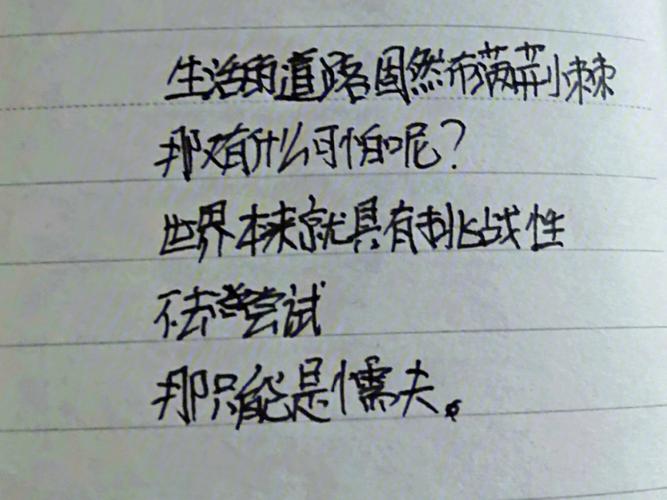 生活的道路固然布满荆棘
那又有什么可怕呢？
世界本来就具有挑战性
不去尝试
那只能是懦夫。